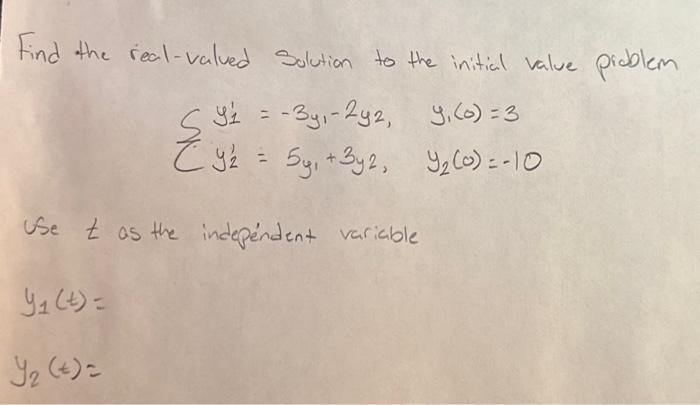 Find the real-valued solution to the initial value problem
{ y₁' = -3y₁-2y2, y₁(0)=3
y₂' = 5y₁+3y2, y₂(0)=-10
use t as the independent variable
y₁(t)=
y₂(t)=